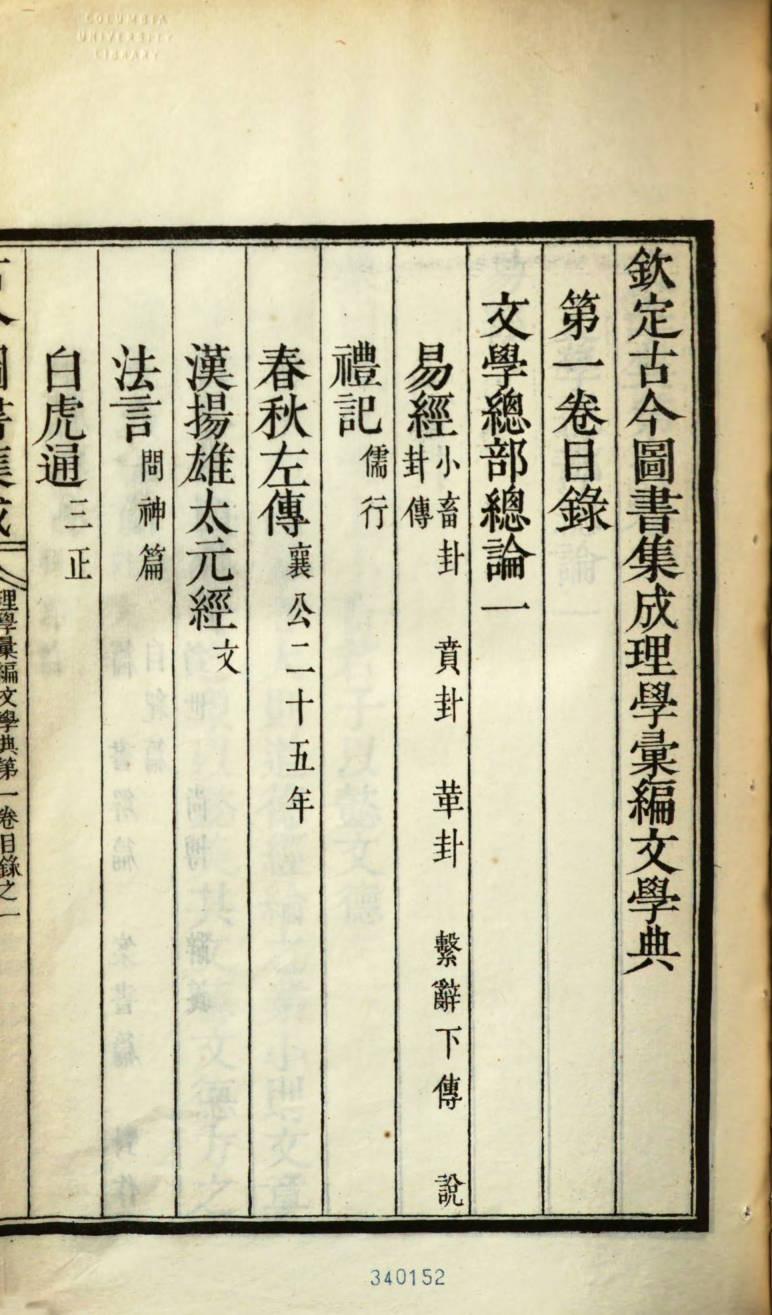 COLUMBIA
UNIVERSITY
LIBRARY
欽定古今圖書集成理學彙編文學典
第一卷目錄
文學總部總論一
易經小畜卦 賁卦 革卦 繫辭下傳 說
卦傳
禮記儒行
春秋左傳襄公二十五年
漢揚雄太元經文
法言問神篇
白虎通三正
理學彙編文學典第一卷目錄之一
340152